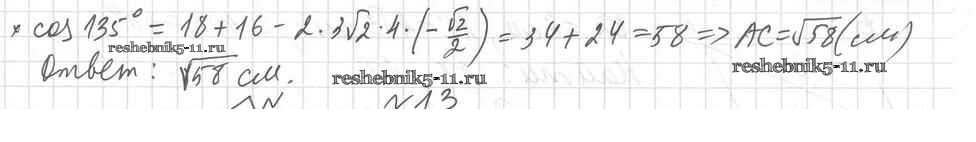 × cos 135° = 18 + 16 - 2 · 3√2 · 4 · (-√2/2) = 34 + 24 = 58 => AC = √58 (см)
reshebnik5-11.ru
Ответ: √58 см.
reshebnik5-11.ru
reshebnik5-11.ru
N13